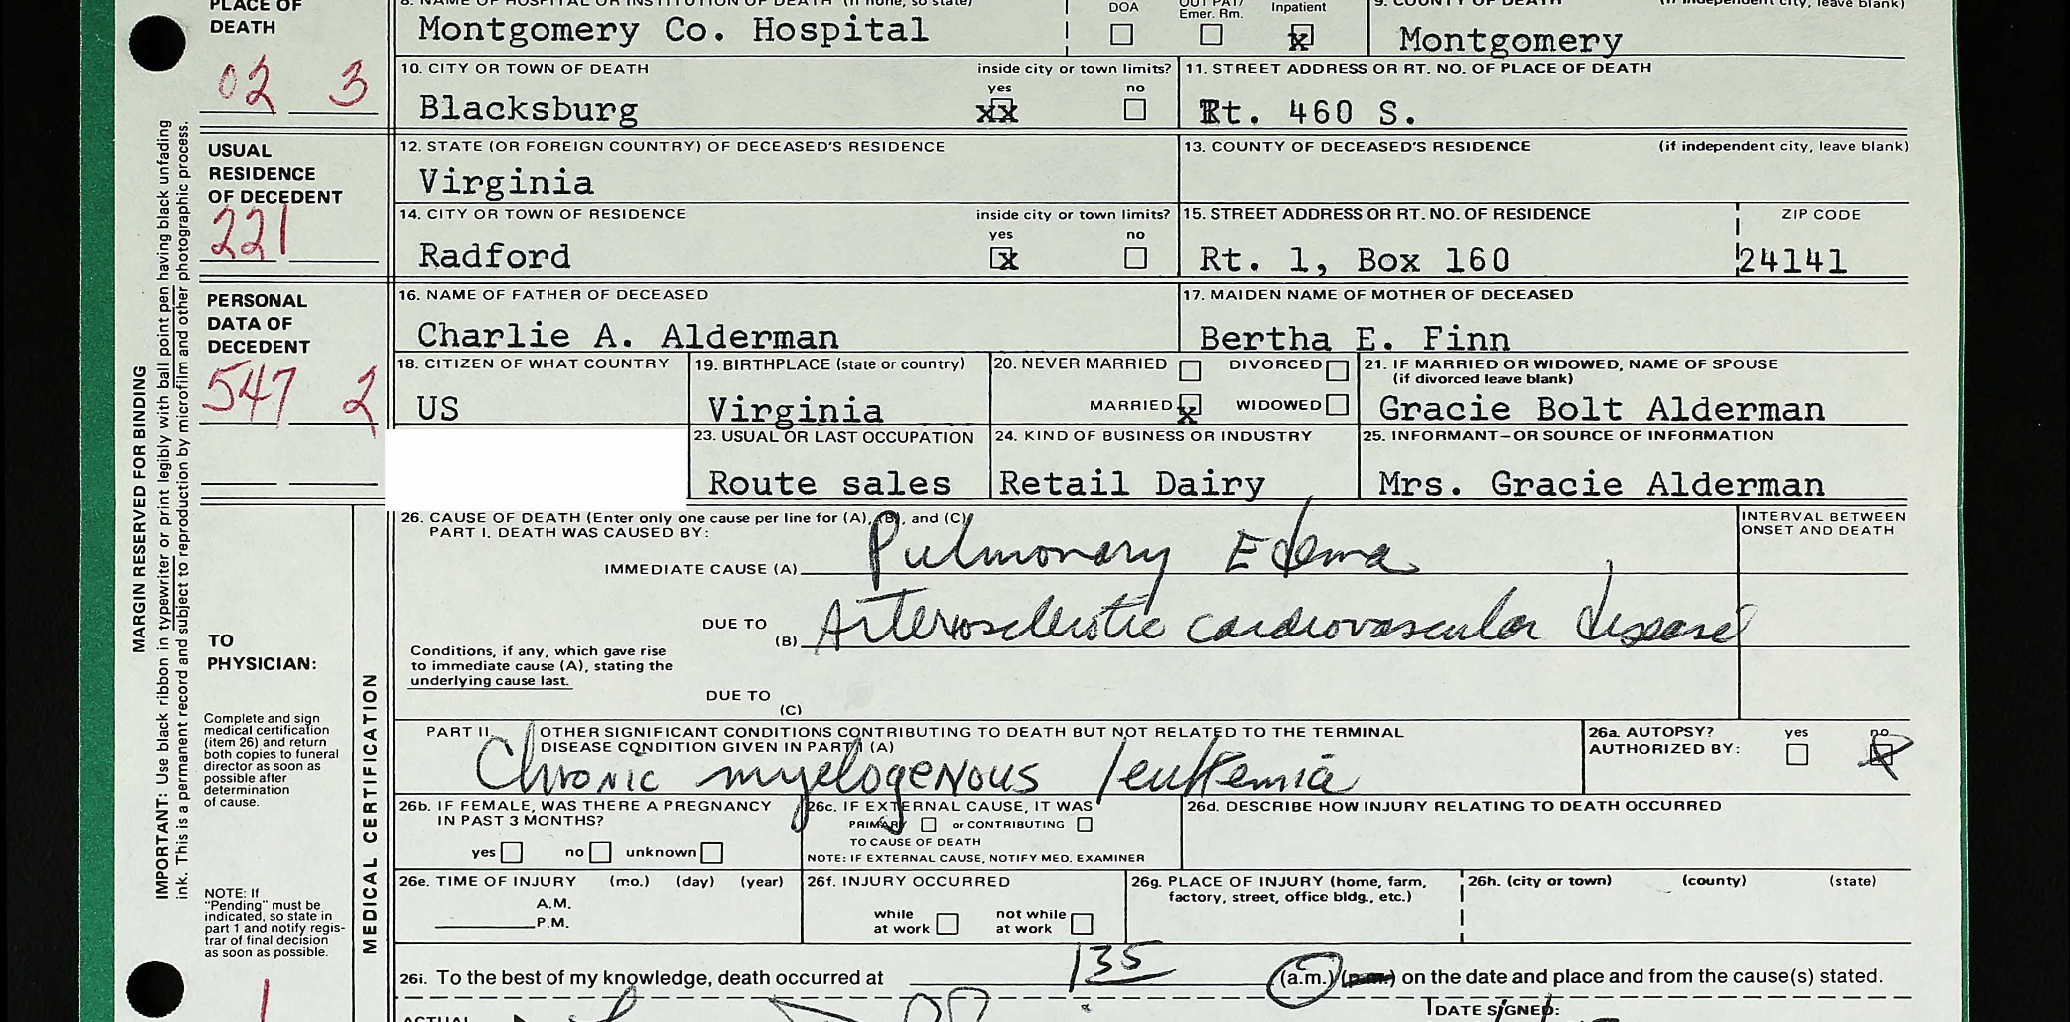 PLACE OF DEATH
8. NAME OF HOSPITAL OR INSTITUTION OF DEATH (if none, so state)
DOA
OUT PAT/ Emer. Rm.
Inpatient
9. COUNTY OF DEATH (if independent city, leave blank)
Montgomery Co. Hospital
x
Montgomery
02 3
10. CITY OR TOWN OF DEATH
inside city or town limits?
yes no
Blacksburg
xx
11. STREET ADDRESS OR RT. NO. OF PLACE OF DEATH
Rt. 460 S.
USUAL RESIDENCE OF DECEDENT
221
12. STATE (OR FOREIGN COUNTRY) OF DECEASED'S RESIDENCE
Virginia
13. COUNTY OF DECEASED'S RESIDENCE (if independent city, leave blank)
14. CITY OR TOWN OF RESIDENCE
inside city or town limits?
yes no
Radford
x
15. STREET ADDRESS OR RT. NO. OF RESIDENCE
ZIP CODE
Rt. 1, Box 160
24141
PERSONAL DATA OF DECEDENT
547 2
16. NAME OF FATHER OF DECEASED
Charlie A. Alderman
17. MAIDEN NAME OF MOTHER OF DECEASED
Bertha E. Finn
18. CITIZEN OF WHAT COUNTRY
US
19. BIRTHPLACE (state or country)
Virginia
20. NEVER MARRIED DIVORCED
MARRIED x WIDOWED
21. IF MARRIED OR WIDOWED, NAME OF SPOUSE
(if divorced leave blank)
Gracie Bolt Alderman
23. USUAL OR LAST OCCUPATION
Route sales
24. KIND OF BUSINESS OR INDUSTRY
Retail Dairy
25. INFORMANT–OR SOURCE OF INFORMATION
Mrs. Gracie Alderman
MARGIN RESERVED FOR BINDING
IMPORTANT: Use black ribbon in typewriter or print legibly with ball point pen having black unfading
ink. This is a permanent record and subject to reproduction by microfilm and other photographic process.
TO PHYSICIAN:
Complete and sign
medical certification
(item 26) and return
both copies to funeral
director as soon as
possible after
determination
of cause.
NOTE: If
"Pending" must be
indicated, so state in
part 1 and notify regis-
trar of final decision
as soon as possible.
1
MEDICAL CERTIFICATION
26. CAUSE OF DEATH (Enter only one cause per line for (A), (B), and (C))
PART I. DEATH WAS CAUSED BY:
INTERVAL BETWEEN
ONSET AND DEATH
IMMEDIATE CAUSE (A) Pulmonary Edema
DUE TO
(B) Arteriosclerotic cardiovascular disease
Conditions, if any, which gave rise
to immediate cause (A), stating the
underlying cause last.
DUE TO
(C)
PART II. OTHER SIGNIFICANT CONDITIONS CONTRIBUTING TO DEATH BUT NOT RELATED TO THE TERMINAL
DISEASE CONDITION GIVEN IN PART I (A)
Chronic myelogenous leukemia
26a. AUTOPSY?
AUTHORIZED BY:
yes no
x
26b. IF FEMALE, WAS THERE A PREGNANCY
IN PAST 3 MONTHS?
yes no unknown
26c. IF EXTERNAL CAUSE, IT WAS
PRIMARY or CONTRIBUTING
TO CAUSE OF DEATH
NOTE: IF EXTERNAL CAUSE, NOTIFY MED. EXAMINER
26d. DESCRIBE HOW INJURY RELATING TO DEATH OCCURRED
26e. TIME OF INJURY (mo.) (day) (year)
A.M.
P.M.
26f. INJURY OCCURRED
while at work
not while at work
26g. PLACE OF INJURY (home, farm,
factory, street, office bldg., etc.)
26h. (city or town) (county) (state)
26i. To the best of my knowledge, death occurred at 135 (a.m.) (p.m.) on the date and place and from the cause(s) stated.
ACTUAL
DATE SIGNED: